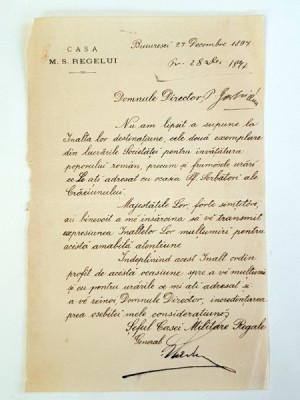 CASA
M. S. REGELUI
Bucuresci 27 Decembre 1897
28 1897
Domnule Director,
Nu am lipsit a supune la
Inalta lor destinațiune, cele două exemplare
din lucrările Societăței pentru învățătura
poporului român, precum și frumósele urări
ce Le ați adresat cu ocazia Sf. Serbători ale
Crăciunului.
Majestățile Lor, fórte simțitóre,
au binevoit a mĕ însărcina să vĕ transmit
expresiunea Inaltelor Lor mulțumiri pentru
acéstă amabilă atențiune
Indeplinind acest Inalt ordin
profit de acéstă ocasiune spre a vĕ mulțumi
și eu pentru urările ce mi ați adresat și
a vĕ reînoi, Domnule Director, încredințarea
prea osebitei mele considerațiuni,
Șeful Casei Militare Regale
General